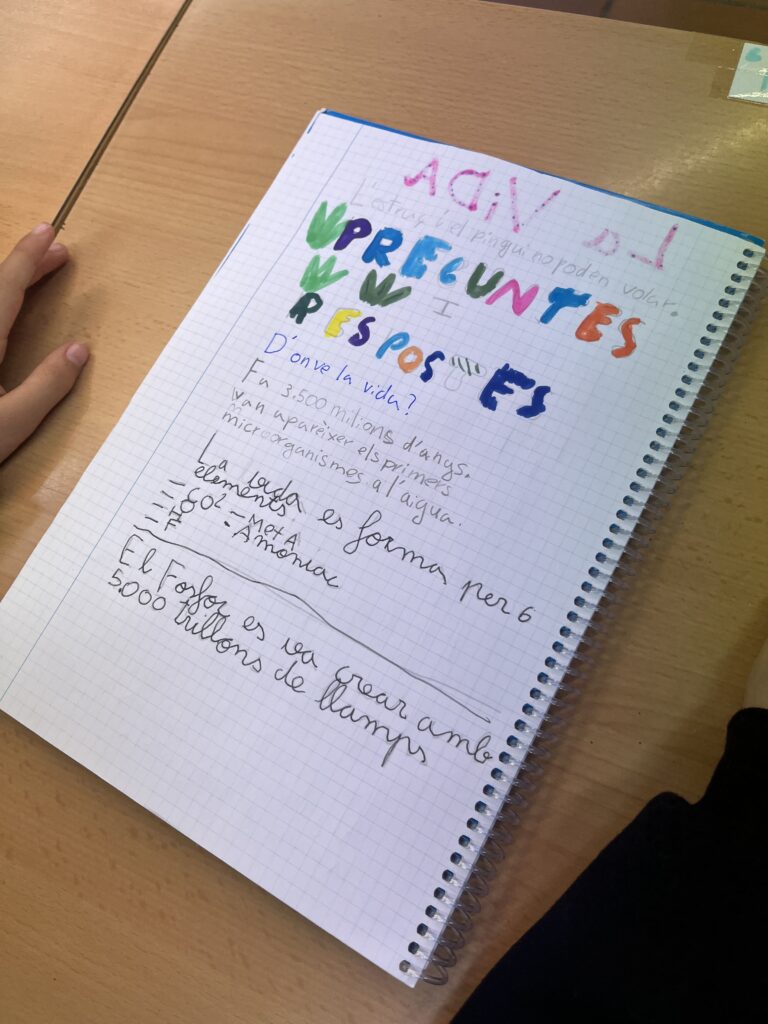 La ViDA
L'estruç i el pingüi no poden volar.
PREGUNTES
I
RESPOSTES
D'on ve la vida?
Fa 3.500 milions d'anys,
van aparèixer els primers
microorganismes a l'aigua.
La vida es forma per 6
elements:
- CO2 - MetA
- Amoniac
- F
El Fosfor es va crear amb
5.000 trillons de llamps